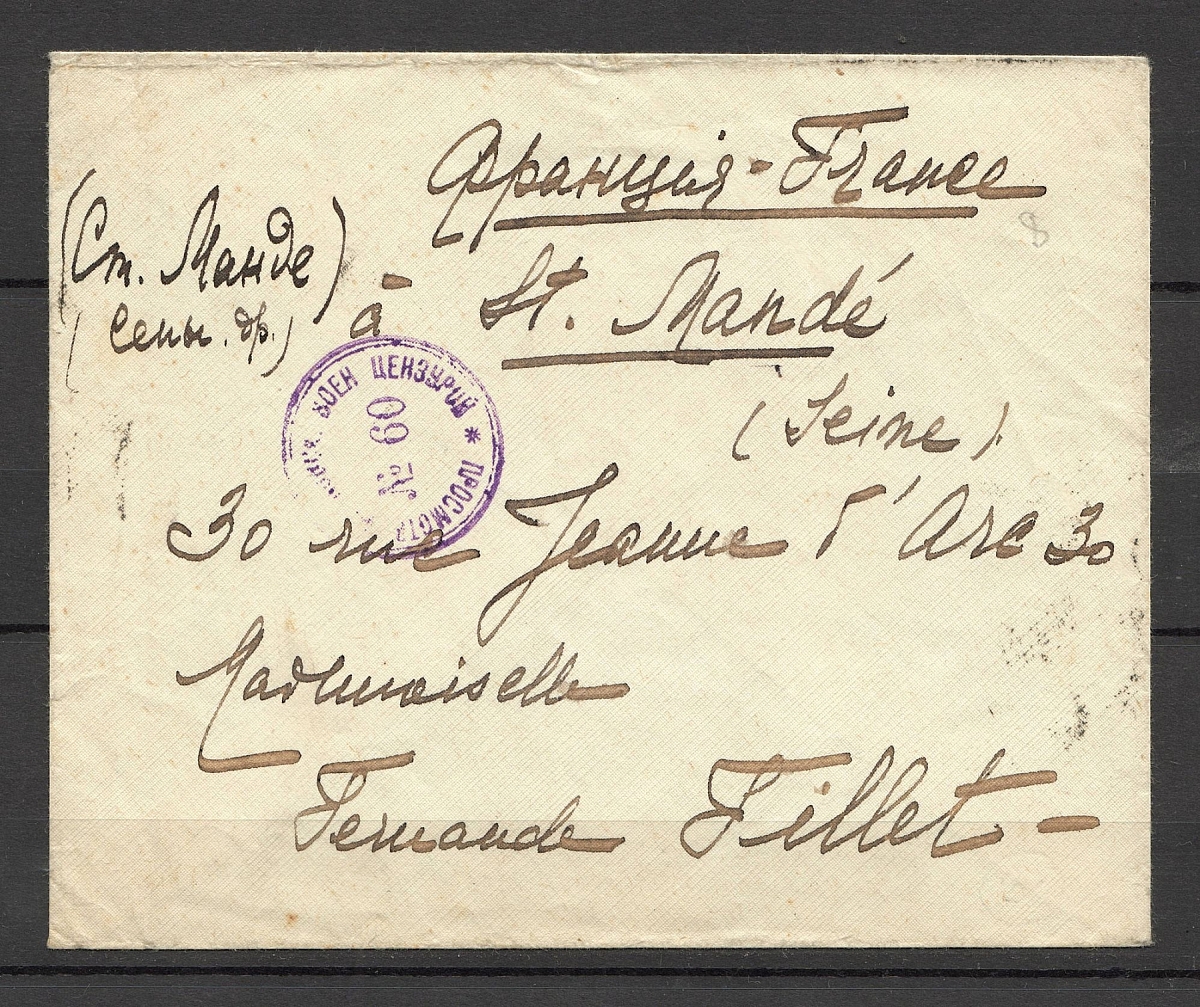 Франція - France
(Ст. Манде)
(Сены. др.)
à St. Mandé
(Seine)
ВОЕН ЦЕНЗУРОЙ * ПРОСМОТР
№ 60
30 rue Jeanne d'Arc 30
Mademoiselle
Fernande Fillet -
8